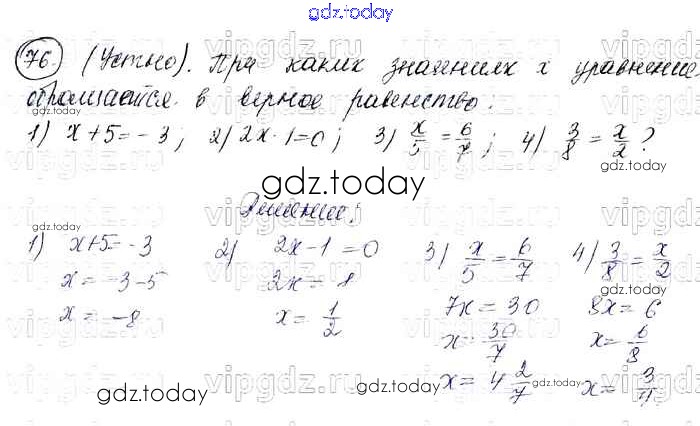 gdz.today
76. (Устно). При каких значениях x уравнение
обращается в верное равенство:
1) x+5=-3; 2) 2x-1=0; 3) x/5 = 6/7; 4) 3/8 = x/2?
gdz.today
gdz.today
gdz.today
gdz.today
Решение:
1) x+5=-3 2) 2x-1=0 3) x/5 = 6/7 4) 3/8 = x/2
x=-3-5 2x= 1 7x=30 8x=6
x=-8 x= 1/2 x= 30/7 x= 6/8
x= 4 2/7 x= 3/4
gdz.today
gdz.today
gdz.today
gdz.today
vipgdz.ru